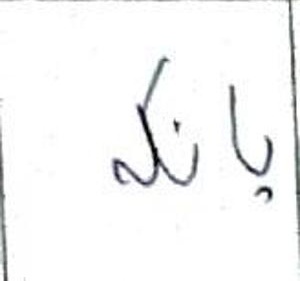 بانکه